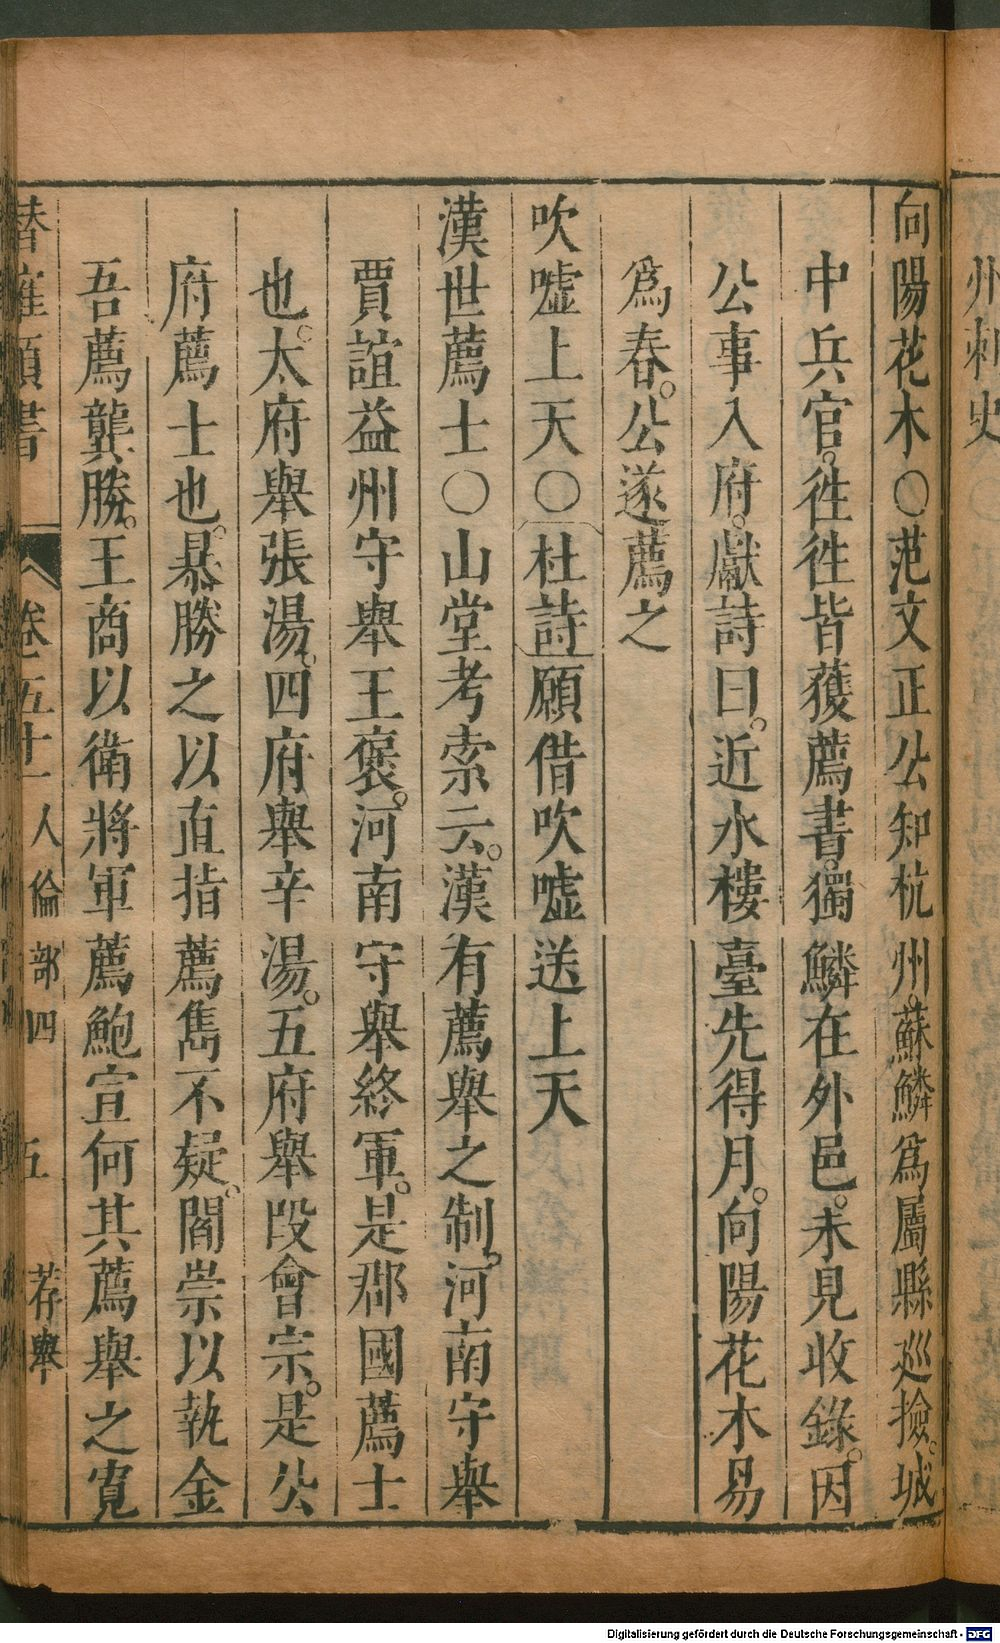 州刺史
向陽花木〇范文正公知杭州。蘇鱗爲屬縣廵撿。城
中兵官。徃徃皆獲薦書。獨鱗在外邑。未見收錄。因
公事入府。獻詩曰。近水樓臺先得月。向陽花木易
爲春。公遂薦之
吹嘘上天〇杜詩願借吹嘘送上天
漢世薦士〇山堂考索云。漢有薦舉之制。河南守舉
賈誼益州守舉王褒。河南守舉終軍。是郡國薦士
也。太府舉張湯。四府舉辛湯。五府舉段會宗。是公
府薦士也。暴勝之以直指薦雋不疑。閻崇以執金
吾薦龔勝。王商以衛將軍薦鮑宣何其薦舉之寛
卷五十一 人倫部四 五 荐舉
Digitalisierung gefördert durch die Deutsche Forschungsgemeinschaft - DFG